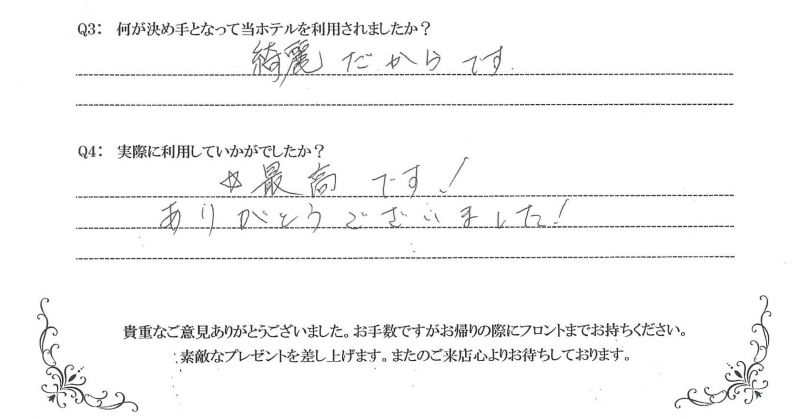 Q3: 何が決め手となって当ホテルを利用されましたか？
綺麗だからです.
Q4: 実際に利用していかがでしたか？
☆最高です!
ありがとうございました!
貴重なご意見ありがとうございました。お手数ですがお帰りの際にフロントまでお持ちください。
素敵なプレゼントを差し上げます。またのご来店心よりお待ちしております。